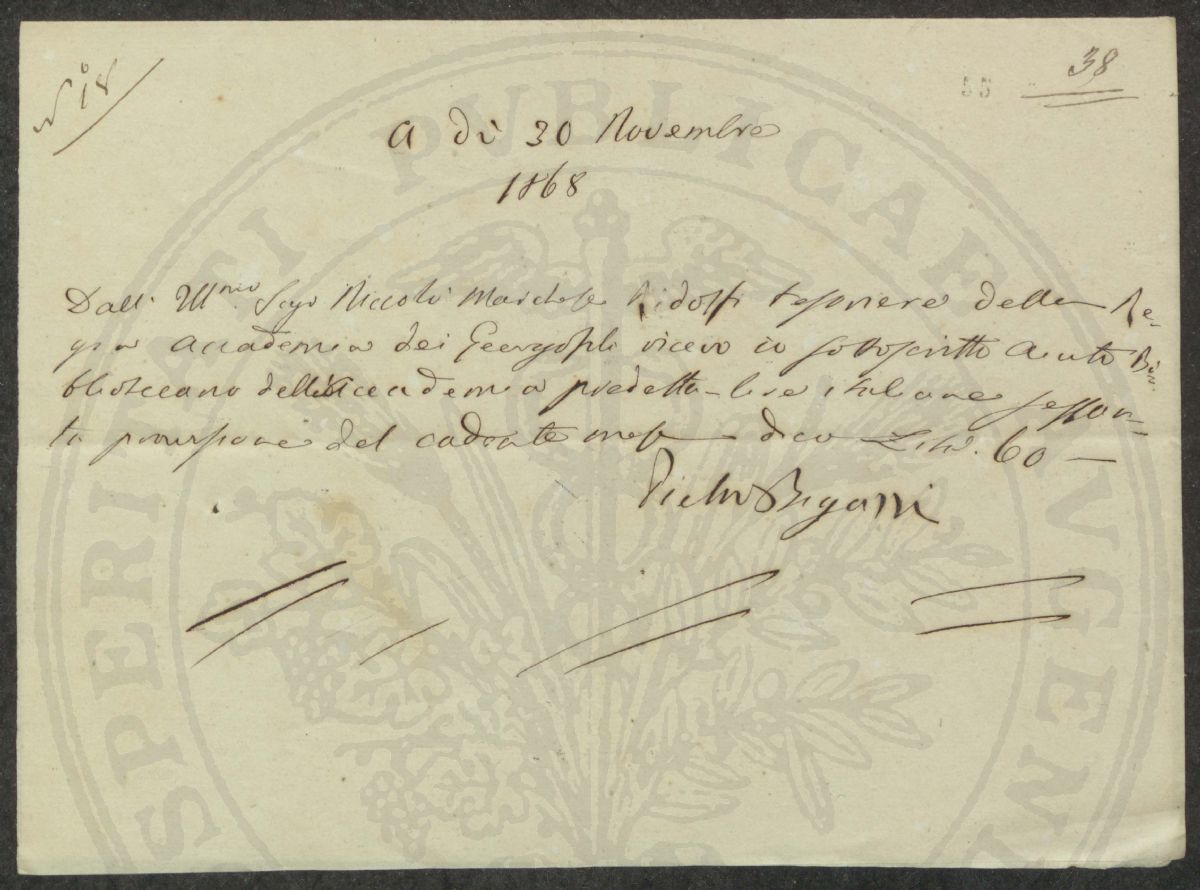 N° 18
55 38
A dì 30 Novembre
1868
Dall' Ill.mo Sigr Niccolò Marchese Ridolfi tesoriere della Re-
gia Accademia dei Georgofili ricevo io sottoscritto Aiuto Bi-
bliotecario dell'Accademia predetta lire italiane sessan-
ta provvisione del cadente mese dico L. it. 60 —
Pietro Bigazzi
PROSPERITATI PUBLICAE AUGENDAE